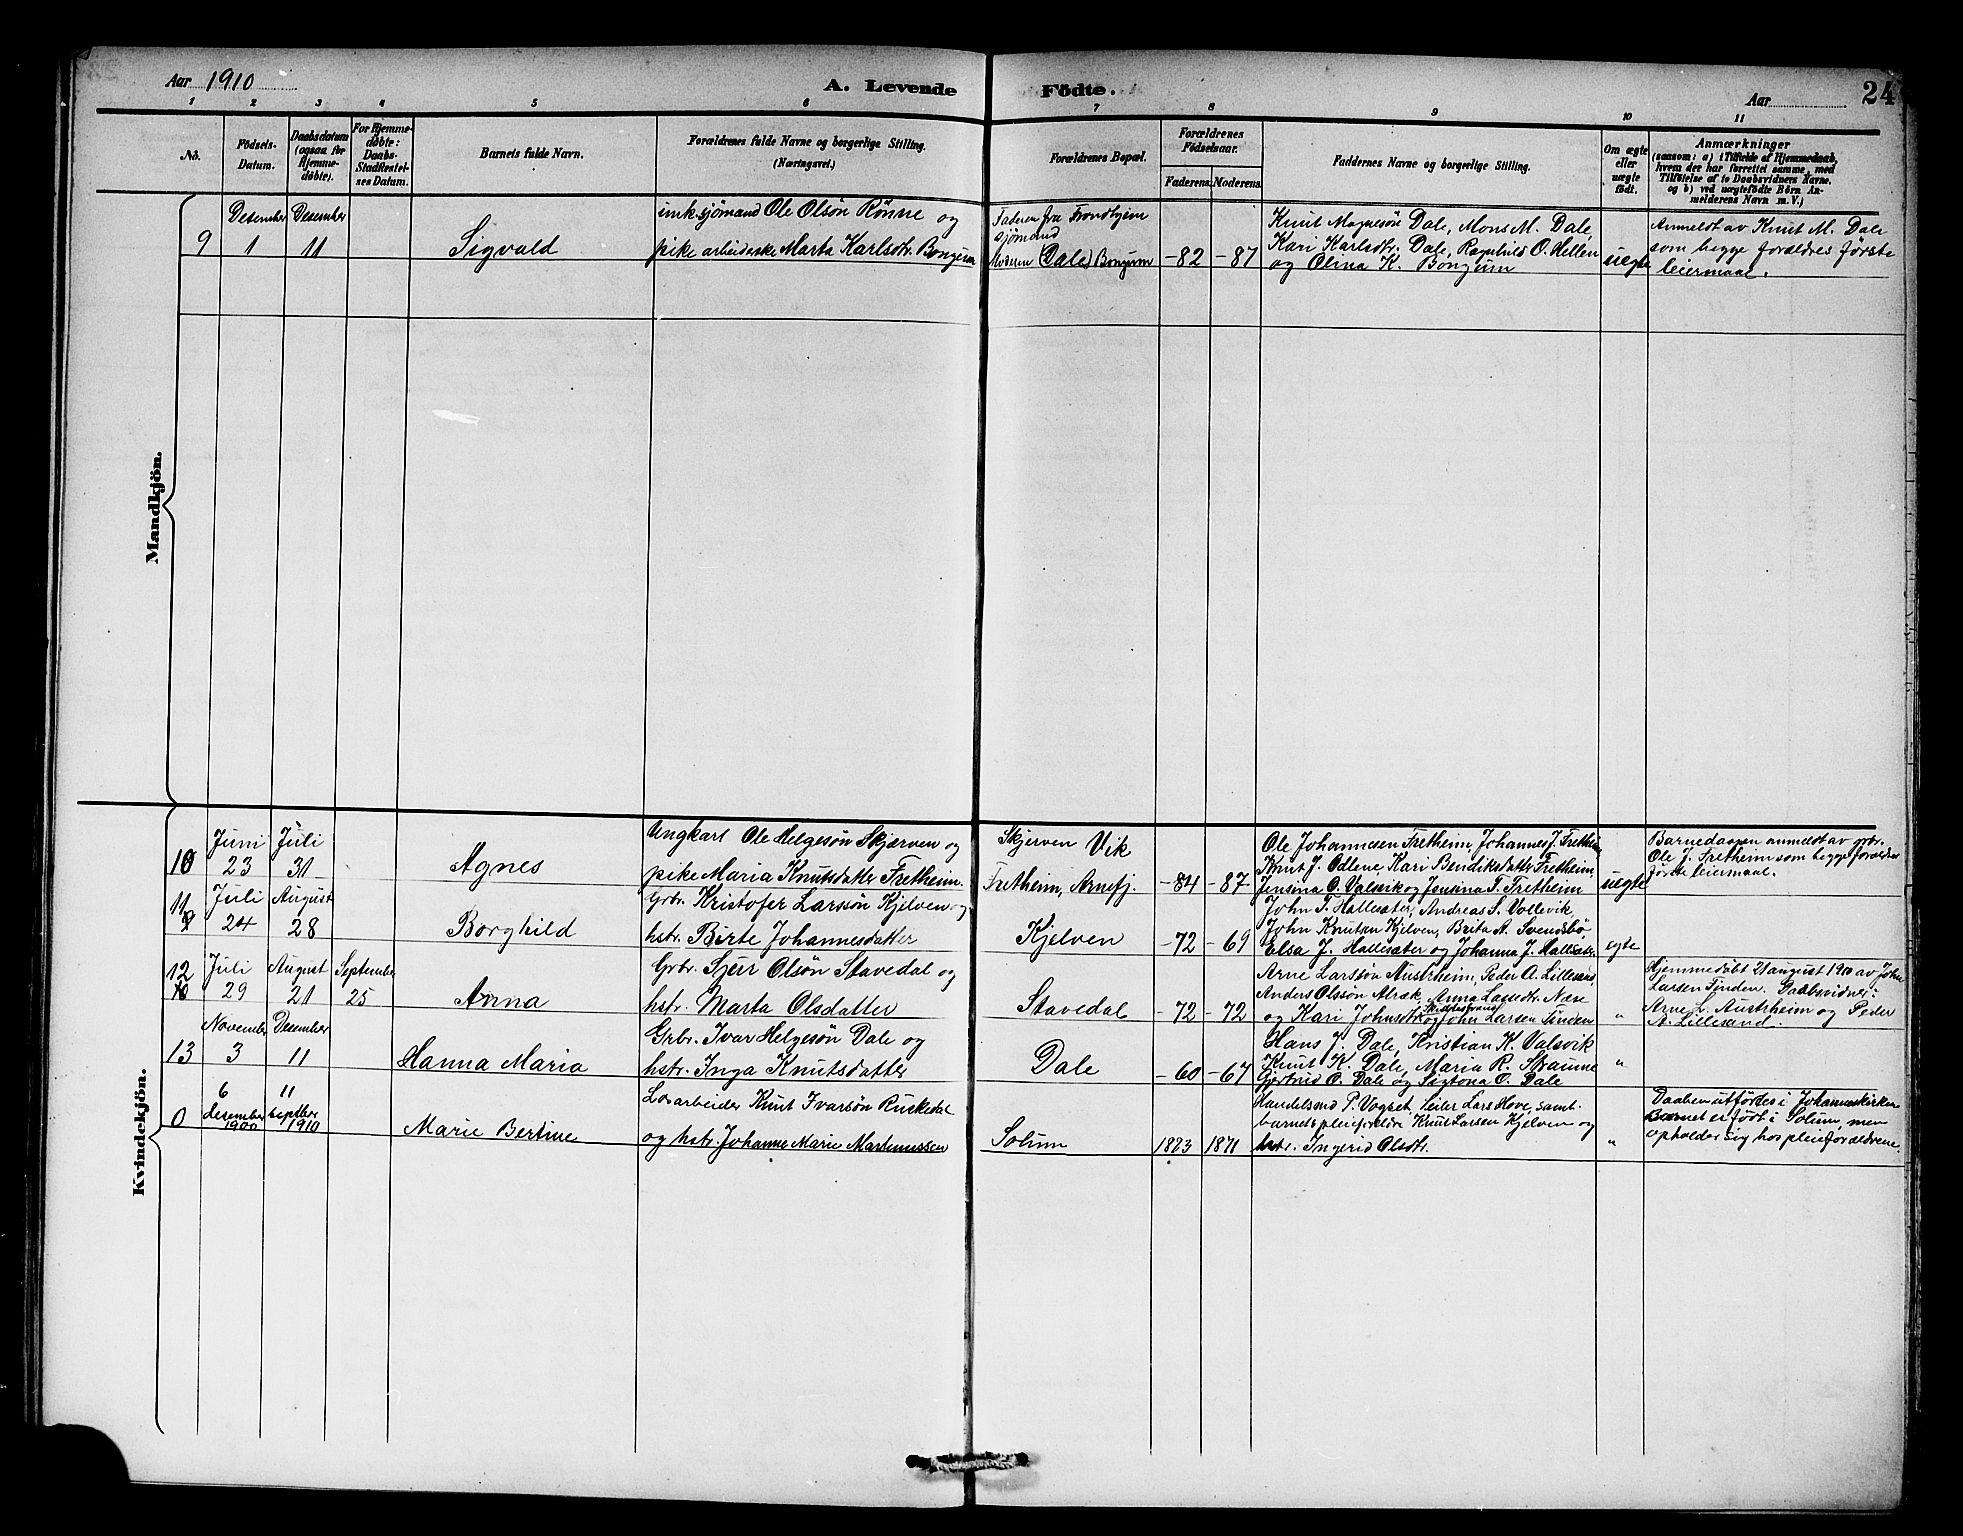 Aar 1910
A. Levende Födte.
Aar
24
1 2 3 4 5 6 7 8 9 10 11
No.
Födsels-Datum.
Daabsdatum (ogsaa for Hjemme-döbte).
For Hjemme-döbte: Daabs-Stadfæstel-ses Datum.
Barnets fulde Navn.
Forældrenes fulde Navne og borgerlige Stilling. (Næringsvei.)
Forældrenes Bopæl.
Forældrenes Födselsaar.
Faderens. Moderens.
Faddernes Navne og borgerlige Stilling.
Om ægte eller uægte födt.
Anmærkninger
(saasom: a) i Tilfælde af Hjemmedaab, hvem der har forrettet samme, med Tilföielse af to Daabsvidners Navne, og b) ved uægtefödte Börn Anmelderens Navn m. V.)
Mandkjön.
9
Desember 1
Desember 11
Sigvald
umk sjömand Ole Olsön Rönne og
pike arbeiderske Marta Karlsdtr. Bongum
Faderen fra Trondhjem
sjömand
Moderen (Dale) Bongum
-82 -87
Knut Magnesön Dale, Mons M. Dale,
Kari Karlsdtr. Dale, Ragnhild O. Hellen
og Olina K. Bongum
uegte
Anmeldt av Knut M. Dale
som begge forældres første
leiermaal.
Kvindekjön.
10
Juni 23
Juli 31
Agnes
Ungkarl Ole Helgesön Skjærven og
pike Maria Knutsdatter Fretheim.
Skjerven Vik
Fretheim, Arnefj.
-84 -87
Ole Johannesen Fretheim, Johannes J. Fretheim,
Knut J. Odlene, Kari Bendiksdatter Fretheim,
Jensina O. Valsvik og Jensina T. Fretheim
uegte
Barnedaapen anmeldt av grbr.
Ole J. Fretheim som begge forældres
förste leiermaal.
11
Juli 24
August 28
Borghild
Grbr. Kristofer Larssön Kjelven og
hstr. Birte Johannesdatter
Kjelven
-72 -69
John T. Hallesæter, Andreas S. Vollevik,
John Knutsen Kjelven, Brita A. Svendsbö,
Elsa J. Hallesæter og Johanna J. Hallesæter
egte
12
Juli 29
August 21
September 25
Anna
Grbr. Sjur Olsön Stavedal og
hstr. Marta Olsdatter
Stavedal
-72 -72
Arne Larsön Austrheim, Peder A. Lillesand,
Anders Olssön Alræk, Anna Lassedtr. Nese
og Kari Johnsdtr og John Larsen Finden
"
Hjemmedöbt 21 august 1910 av John
Larsen Finden. Daabsvidner:
Arne L. Austrheim og Peder
A. Lillesand.
13
November 3
Desember 11
Hanna Maria
Grbr. Ivar Helgesön Dale og
hstr. Inga Knutsdatter
Dale
-60 -67
Hans J. Dale, Kristian K. Valsvik
Knut K. Dale, Maria R. Straume
Gjertrud O. Dale og Sigtona O. Dale
"
0
6 desember 1900
11 septber 1910
Marie Bertine
Losarbeider Knut Ivarsön Ruskedal
og hstr. Johanne Marie Martinussen
Solum
1873 1871
Handelsmd P. Vogset, Leiler Lars Hove, samt
barnets pleieforældre Knut Larsen Kjelven og
hstr. Ingerid Olsdtr.
"
Daaben utfördes i Johanneskirken
Barnet er född i Solum, men
opholder sig hos pleieforældrene.